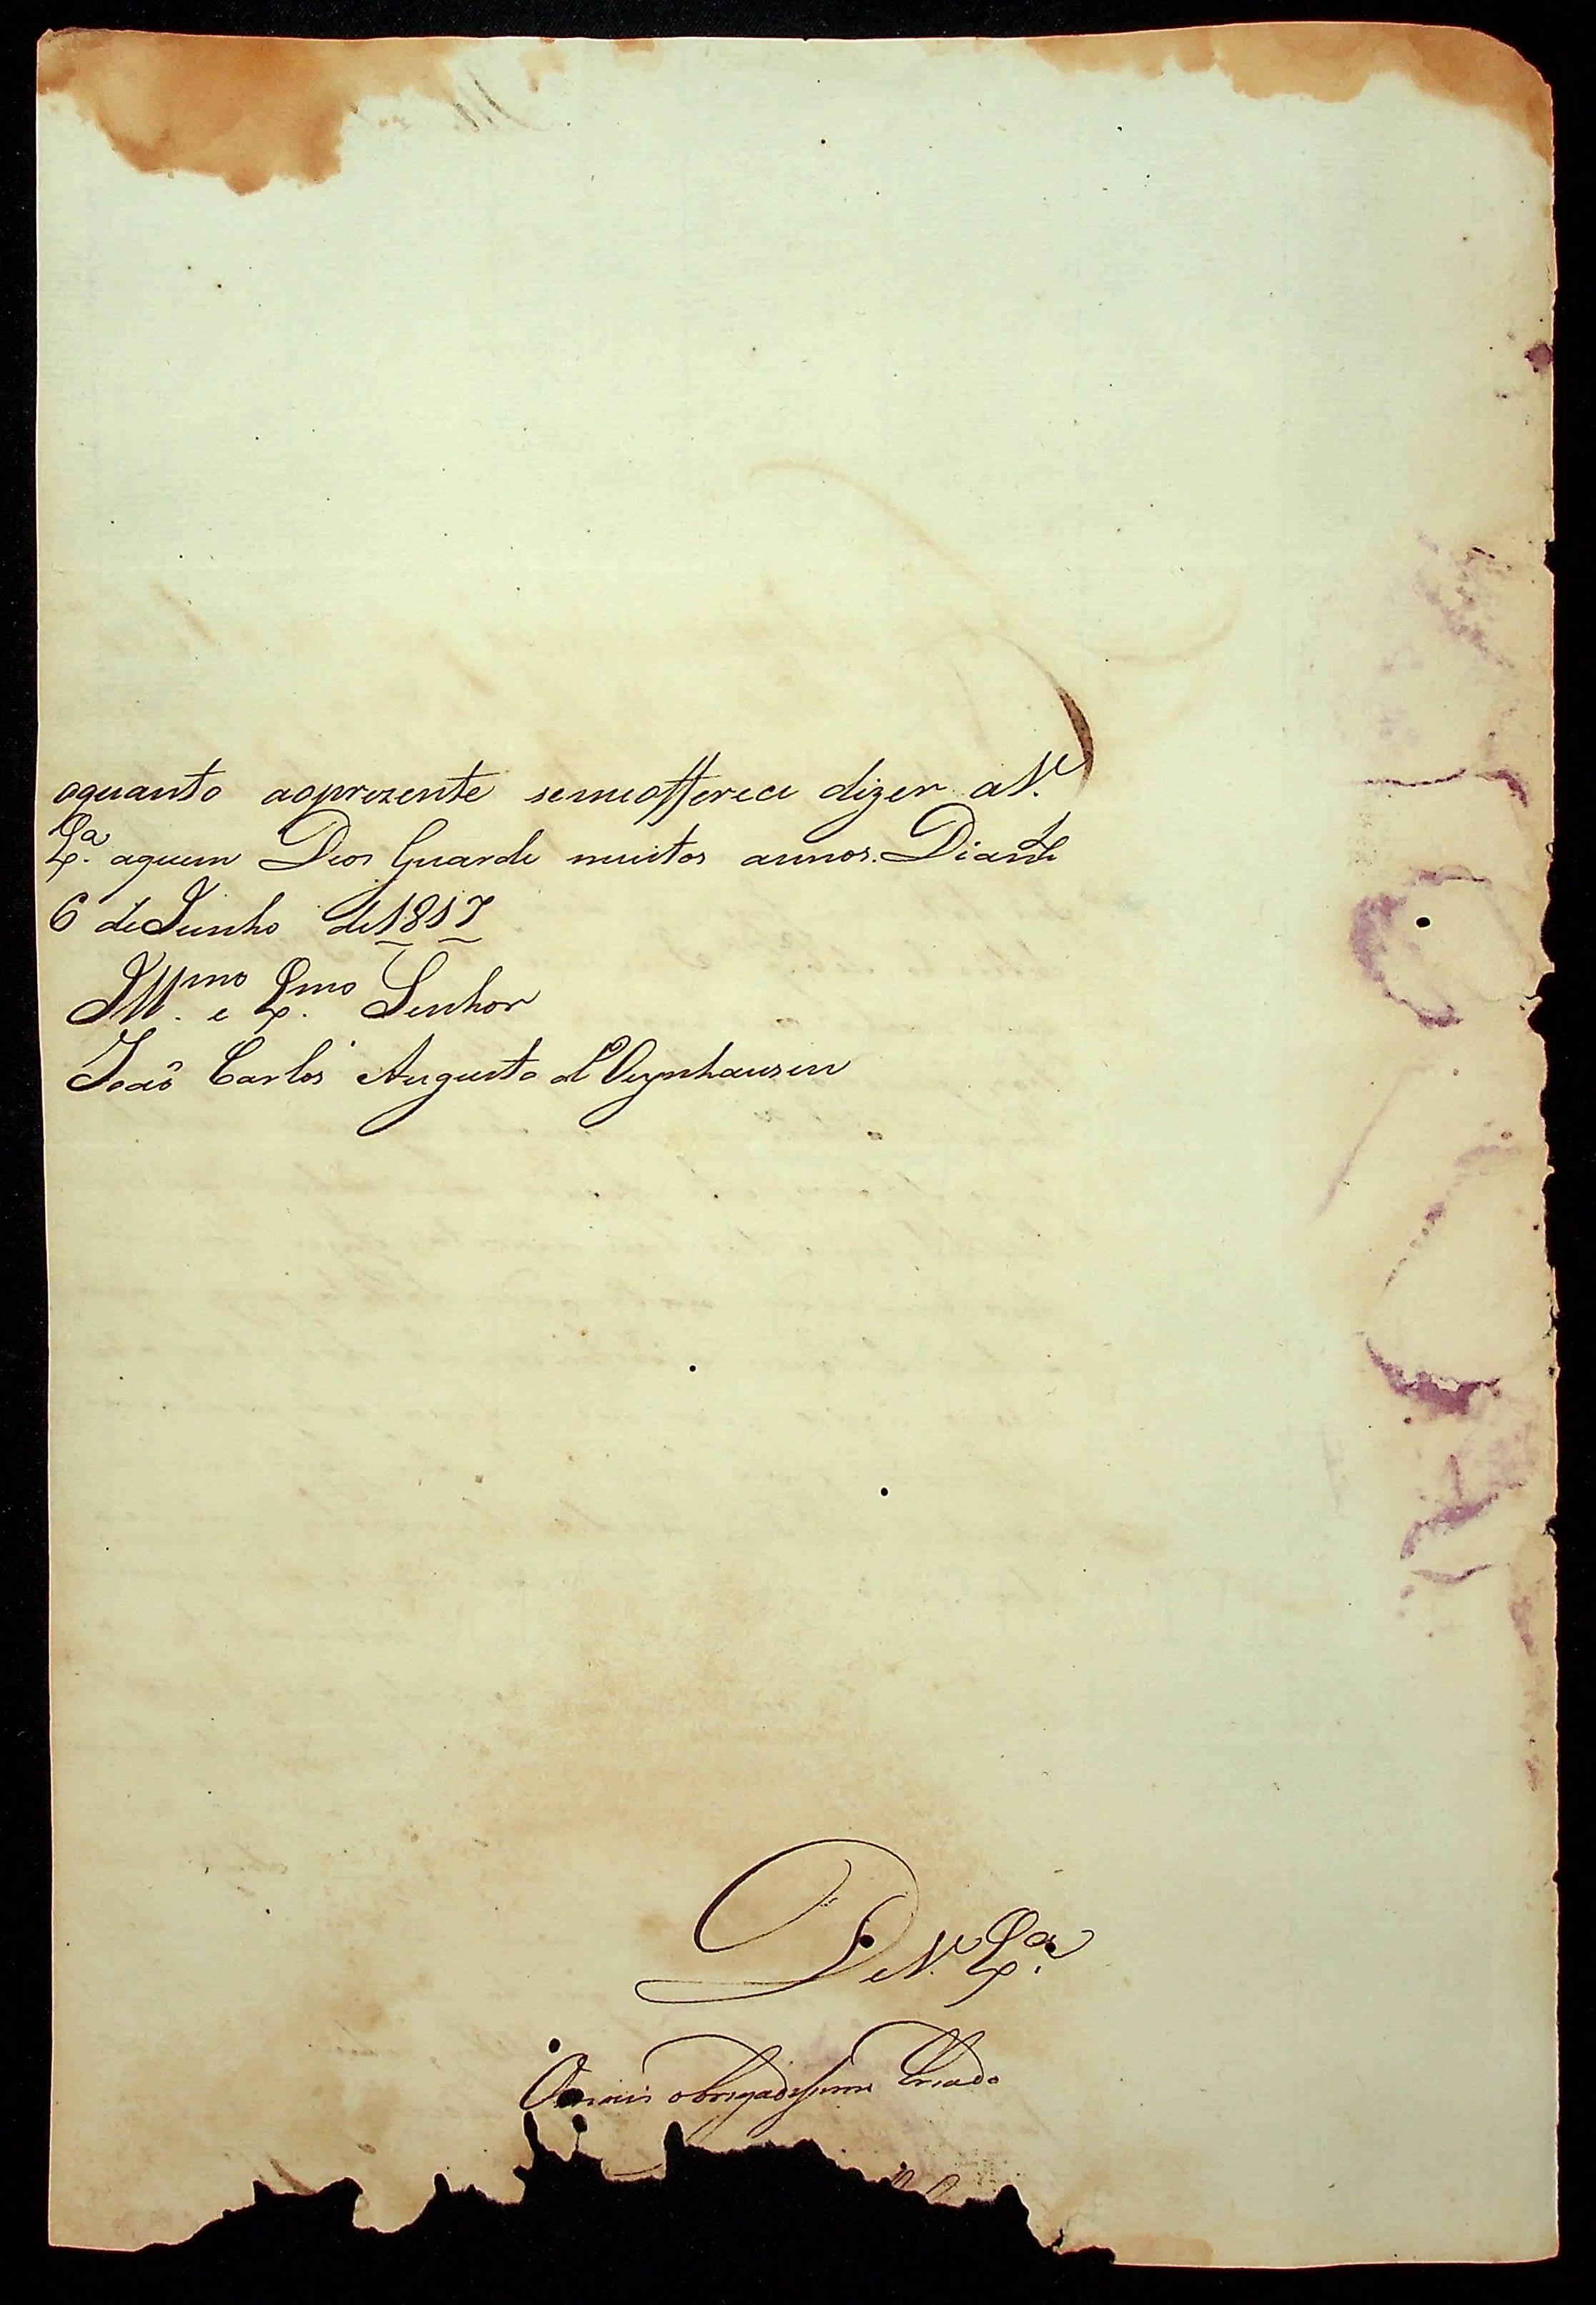 oquanto aoprezente semeofferece dizer aV.
Ex.ª aquem Deos Guarde muitos annos. Diam.te
6 deJunho de1817
Ill.mo e Ex.mo Senhor
João Carlos Augusto d'Oeynhausen
DeV. Ex.ª
Omais obrigadissimo Criado